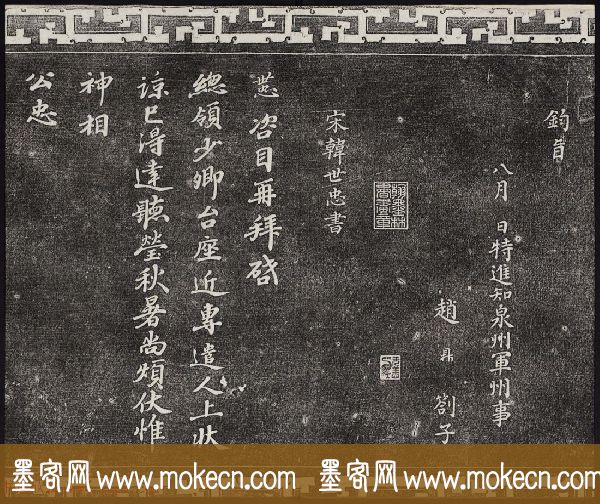 鈞旨
八月 日特進知泉州軍州事
趙鼎劄子
宋韓世忠書
咨目再拜啓
總領少卿台座近專遣人上狀
諒已得達聽瑩秋暑尚煩伏惟
神相
公忠
墨客网 www.mokecn.com 墨客网 www.mokecn.com